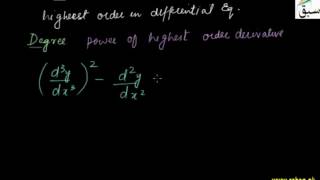 highest order in differential Eq.
Degree power of highest order derivative
(d³y/dx³)² - d²y/dx²
سبق